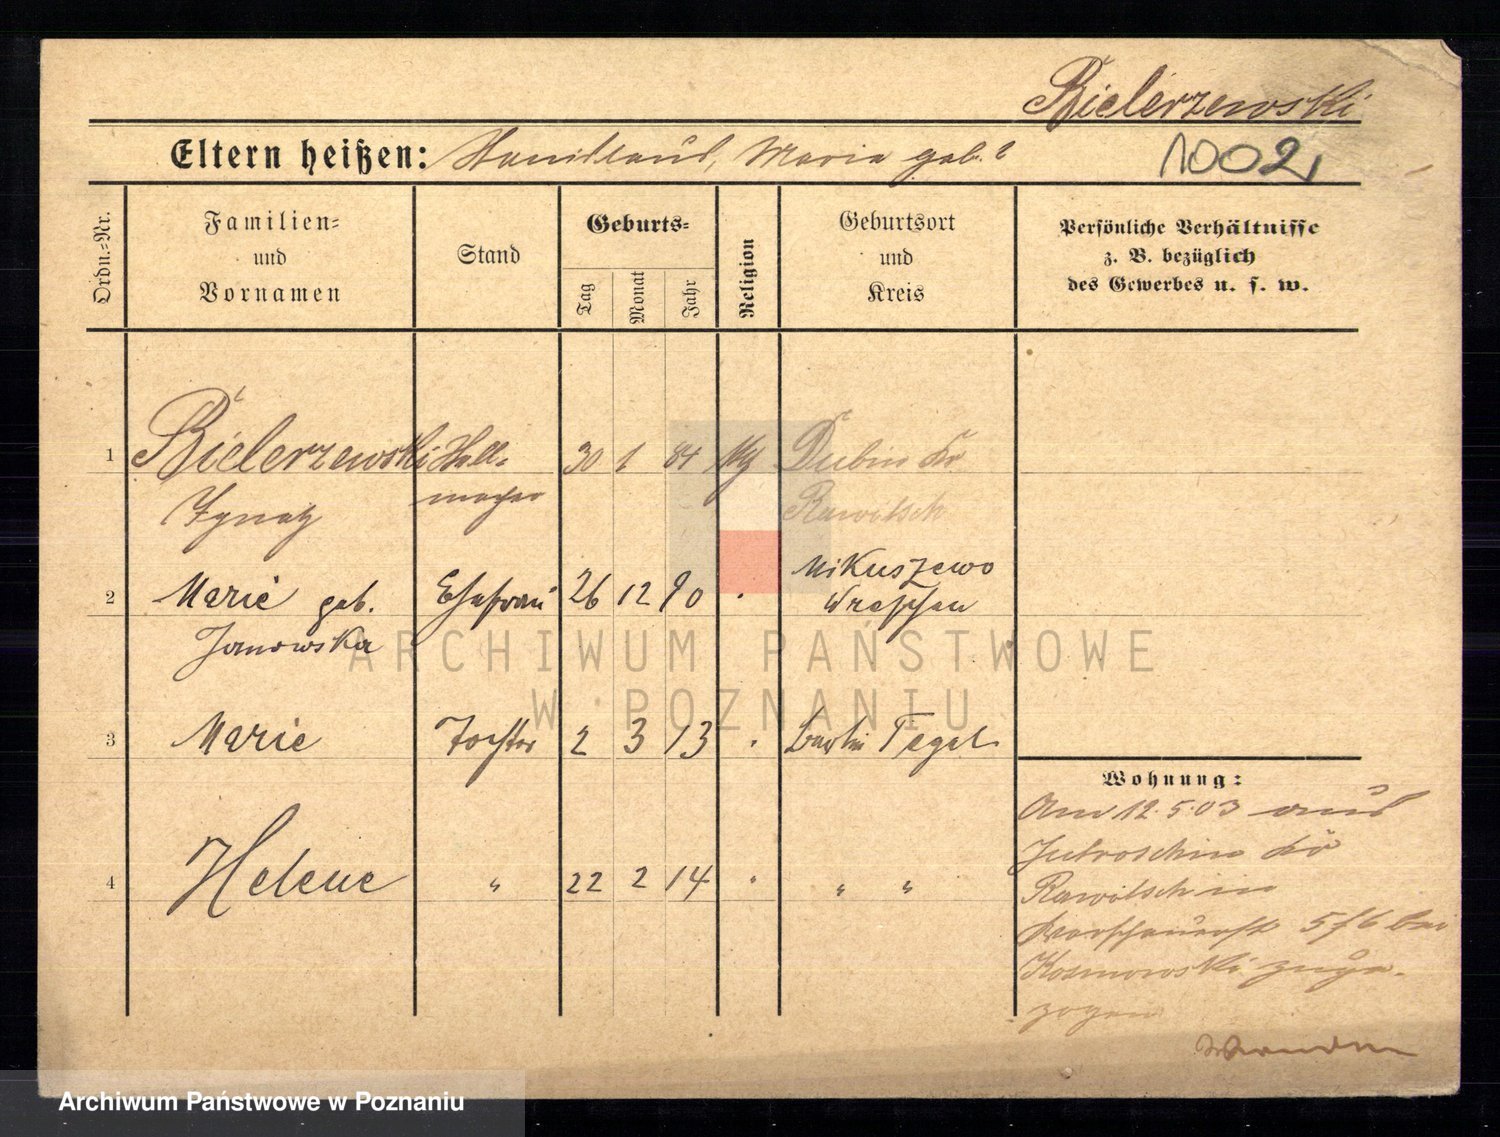 Bielerzewski
Eltern heißen: Stanislaus, Maria geb. ?
1002
Ordn.=Nr.
Familien=
und
Vornamen
Stand
Geburts=
Tag
Monat
Jahr
Religion
Geburtsort
und
Kreis
Persönliche Verhältnisse
z. B. bezüglich
des Gewerbes u. s. w.
1 Bielerzewski Stell= 30 1 84 Dubin Kr
Ignatz macher Rawitsch
Mikuszewo
2 Marie geb. Ehefrau 26 12 90 Wreschen
Janowska
3 Marie Tochter 2 3 13 Berlin Tegel
4 Helene " 22 2 14 " " "
Wohnung:
Am 12.5.03 aus
Jutroschin Kr
Rawitsch in
Warschauerst 5/6 bei
Kosmowski zuge-
zogen
Wenden
ARCHIWUM PAŃSTWOWE
W POZNANIU
Archiwum Państwowe w Poznaniu